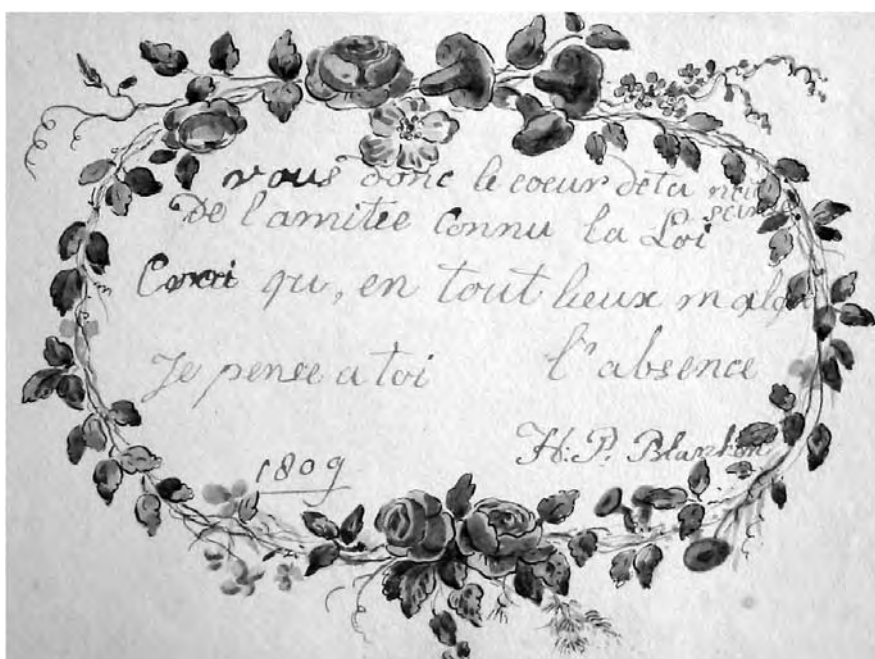 vous donc le coeur de ta nais
sance
De l'amitee Connu la Loi
Croi qu, en tout lieux malgré
Je pense a toi l'absence
1809 H: P. Blanken